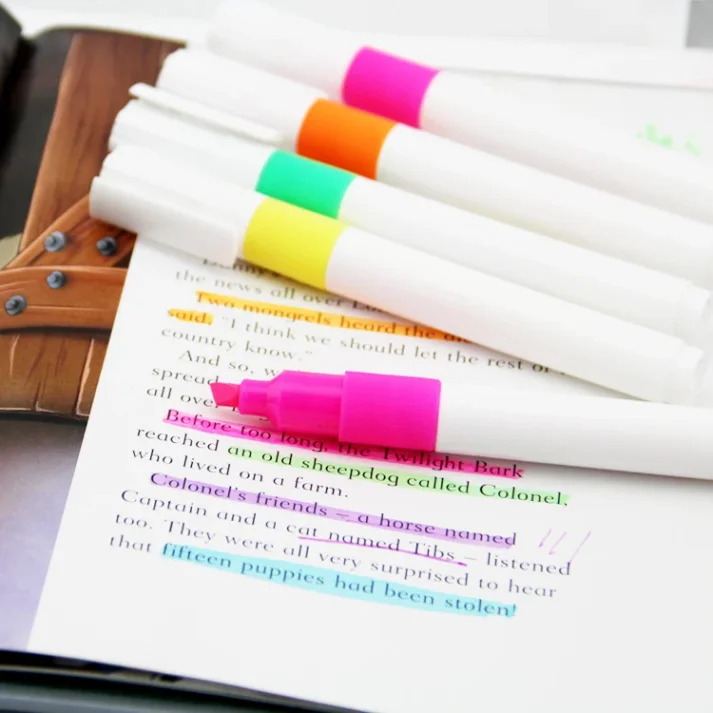 the news all over
Two mongrels heard the
said. "I think we should let the rest of
country know."
And so,
spread
all over
Before too long, the Twilight Bark
reached an old sheepdog called Colonel,
who lived on a farm.
Colonel's friends – a horse named
Captain and a cat named Tibs – listened
too. They were all very surprised to hear
that fifteen puppies had been stolen!